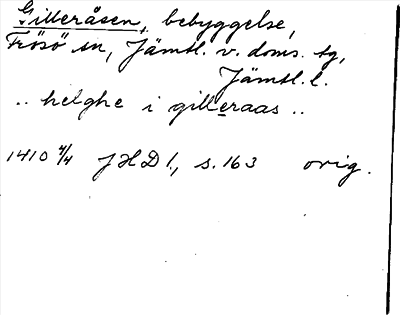 Gilleråsen, bebyggelse,
Frösö sn, Jämtl. v. doms. tg,
Jämtl. l.
.. helghe i gilleraas ..
1410 4/4 JHD 1, s. 163 orig.